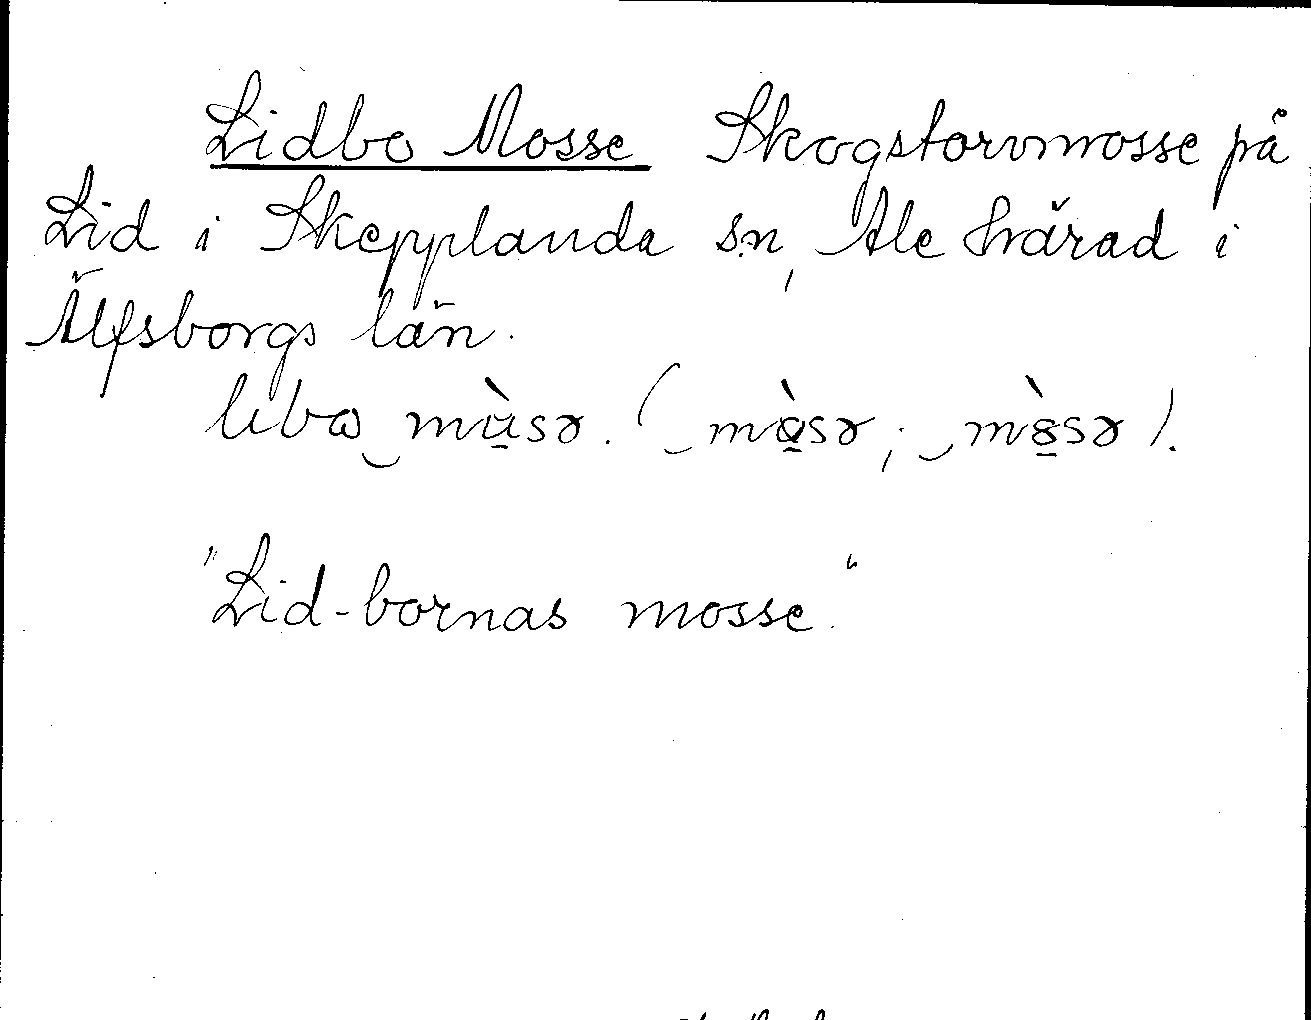 Lidbo Mosse Skogstorvmosse på
Lid i Skepplanda sn, Ale härad i
Älfsborgs län.
mùsə. (‿mòsə; ‿mòsə).
"Lid-bornas mosse."